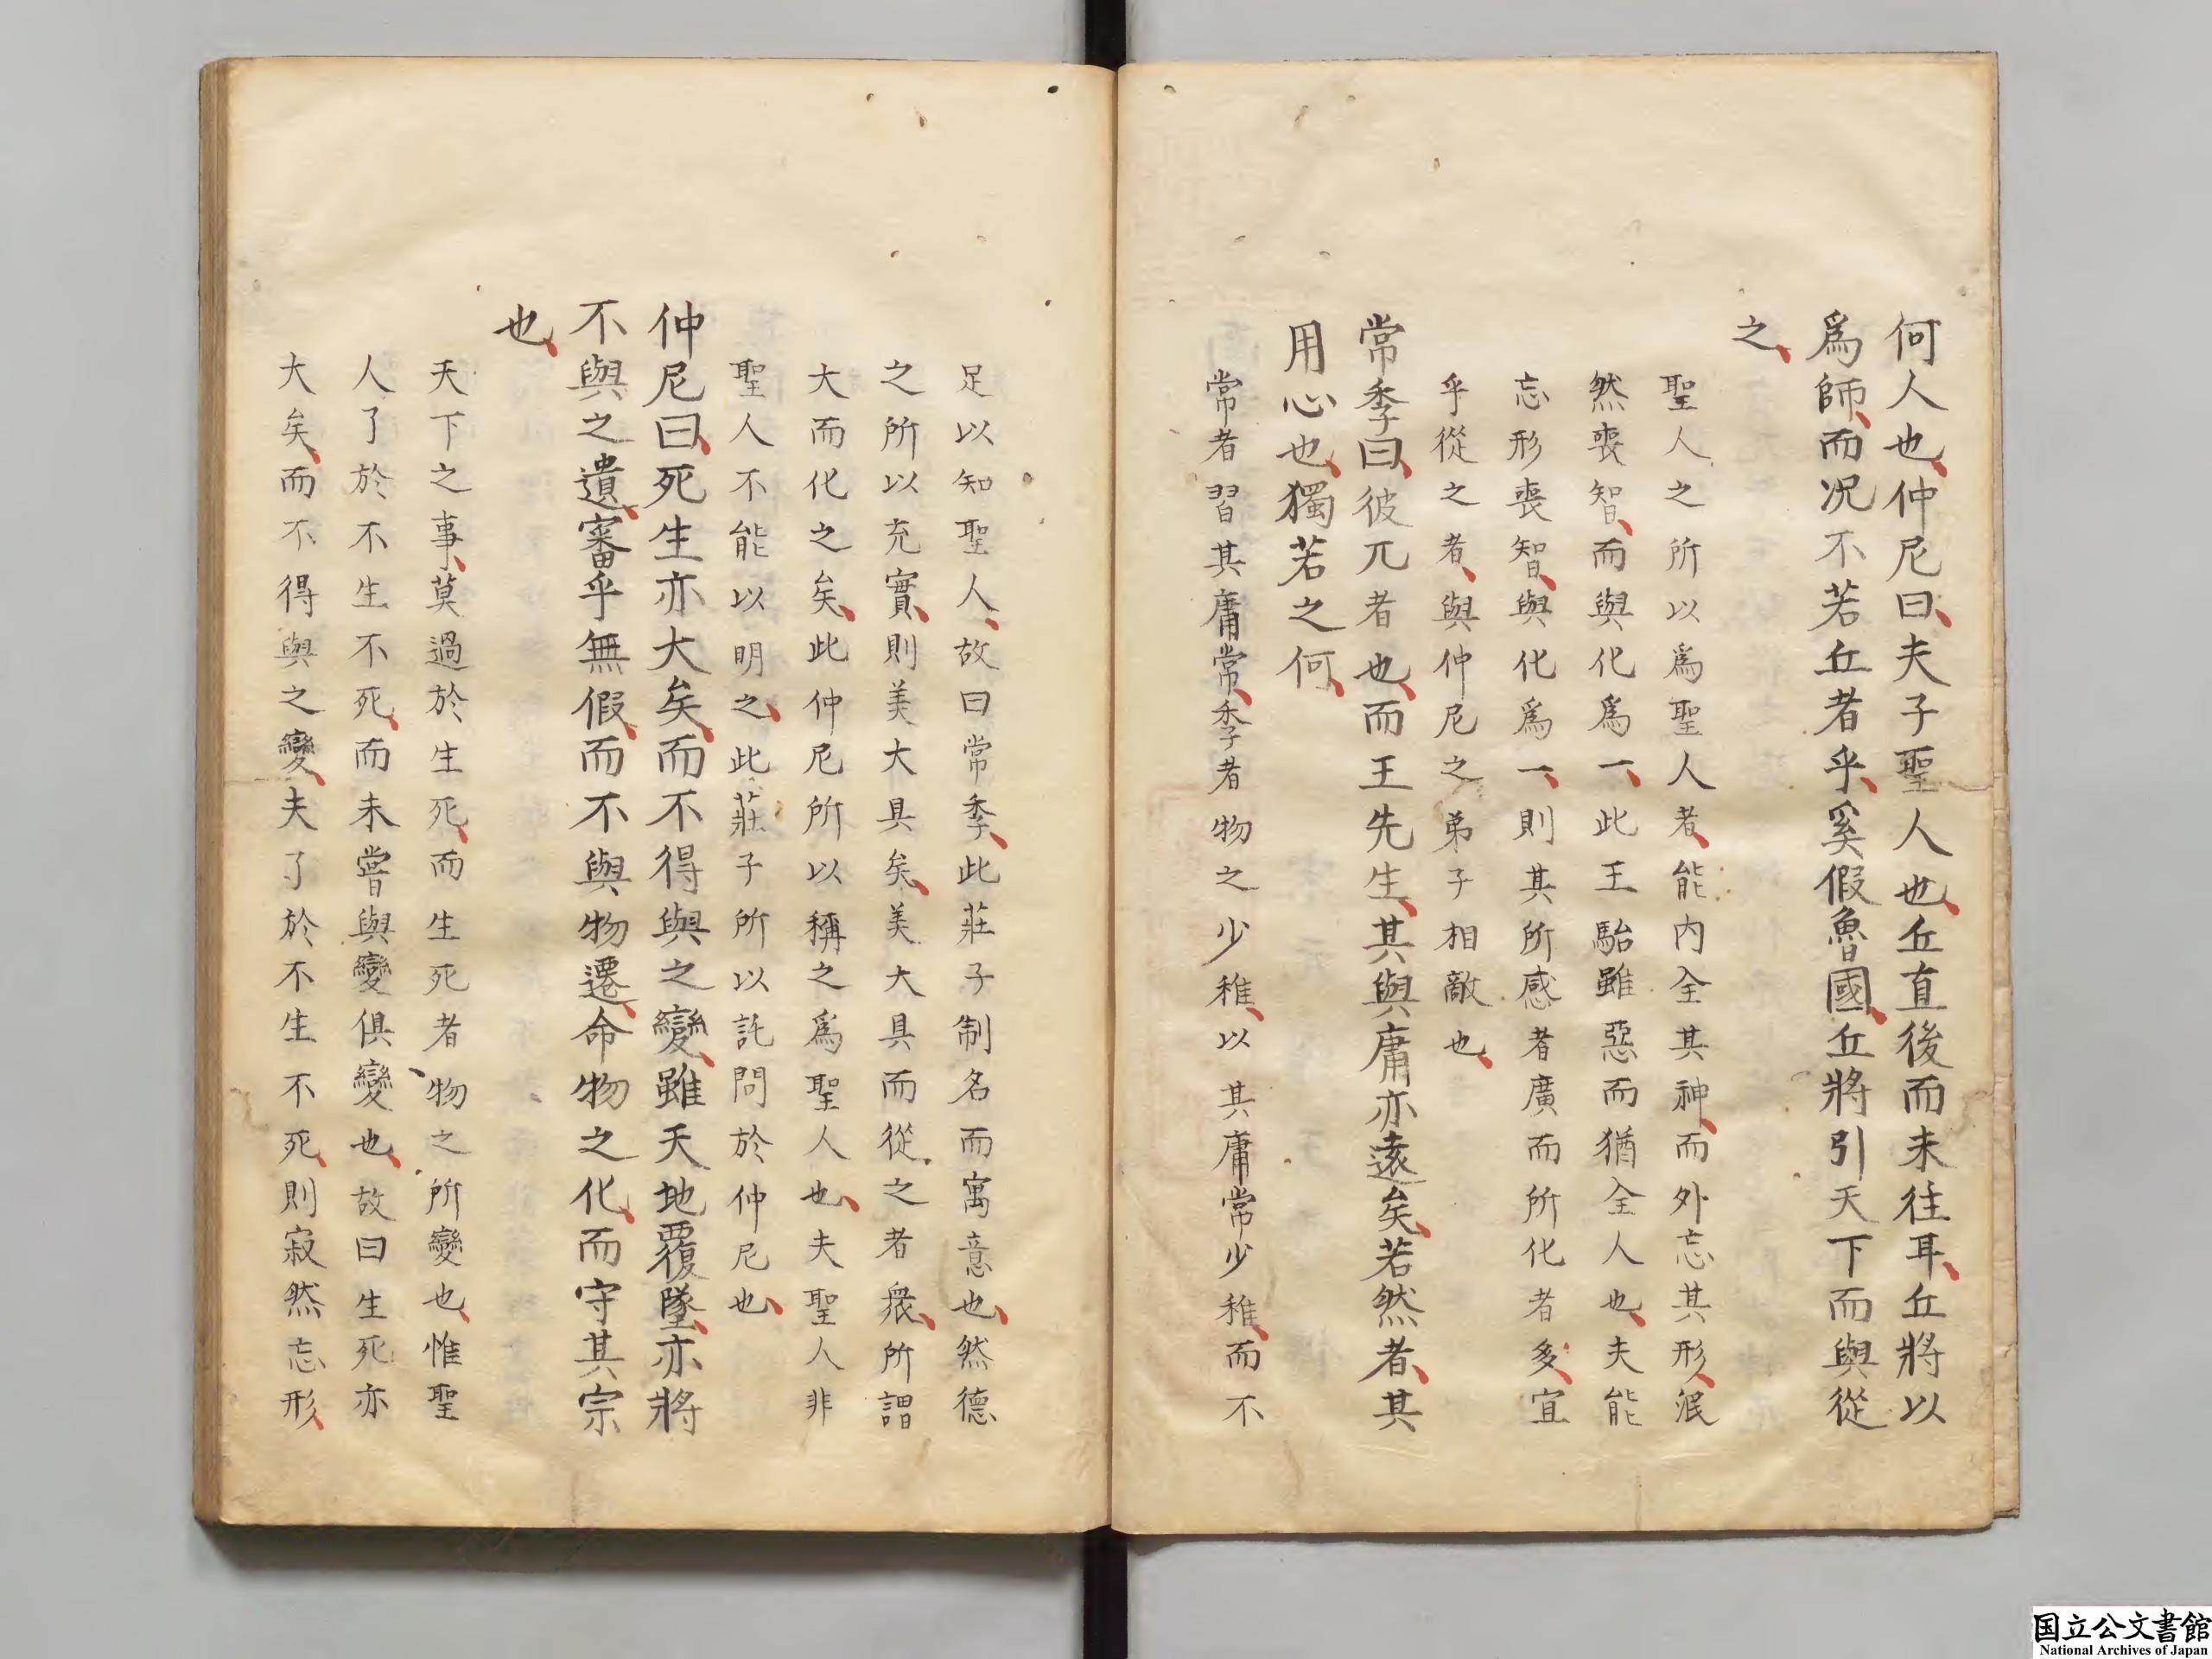 何人也仲尼曰夫子聖人也丘直後而未往耳丘將以
爲師而况不若丘者乎奚假魯國丘將引天下而與從
之
聖人之所以爲聖人者能内全其神而外忘其形泯
然喪智而與化爲一此王駘雖惡而猶全人也夫能
忘形喪智與化爲一則其所感者廣而所化者多宜
乎從之者與仲尼之弟子相敵也
常季曰彼兀者也而王先生其與庸亦遠矣若然者其
用心也獨若之何
常者習其庸常季者物之少稚以其庸常少稚而不
足以知聖人故曰常季此莊子制名而寓意也然德
之所以充實則美大具矣美大具而從之者衆所謂
大而化之矣此仲尼所以稱之爲聖人也夫聖人非
聖人不能以明之此莊子所以託問於仲尼也
仲尼曰死生亦大矣而不得與之變雖天地覆墜亦將
不與之遺審乎無假而不與物遷命物之化而守其宗
也
天下之事莫過於生死而生死者物之所變也惟聖
人了於不生不死而未嘗與變俱變也故曰生死亦
大矣而不得與之變夫了於不生不死則寂然忘形
国立公文書館
National Archives of Japan